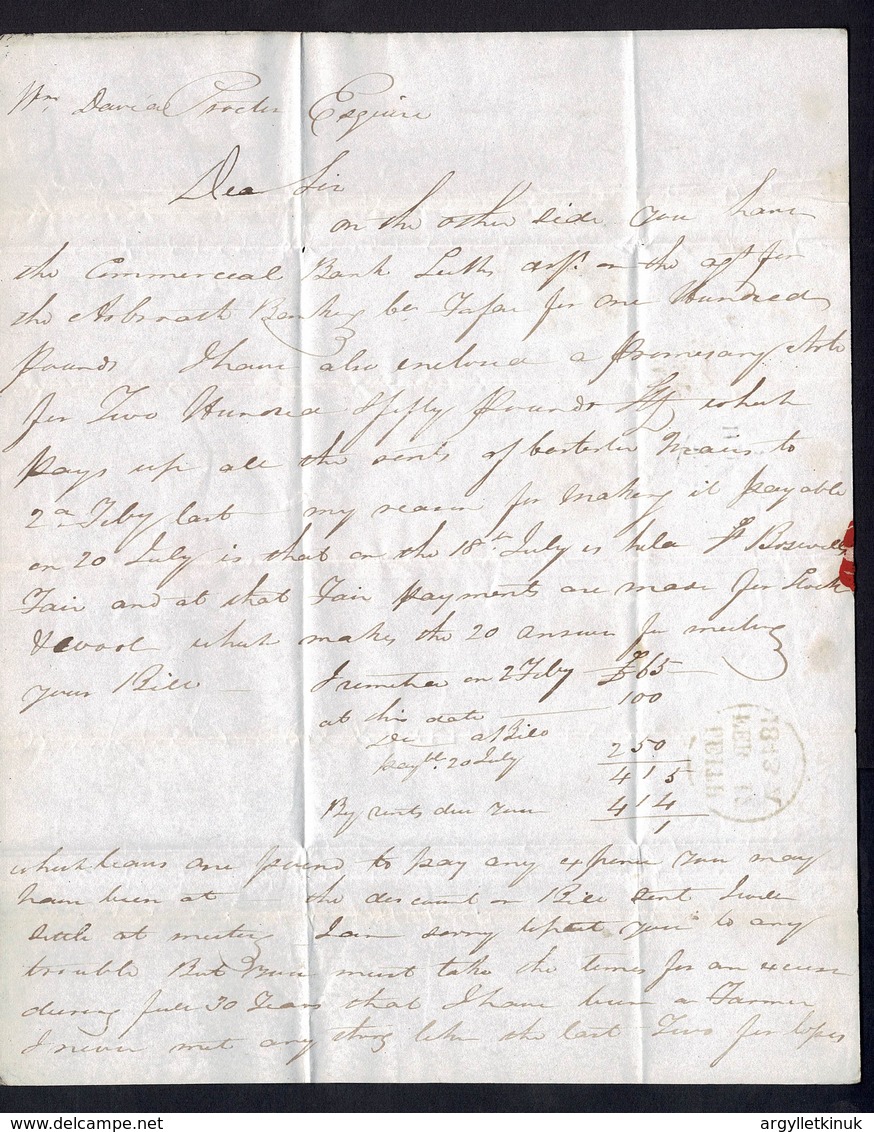 Wm David Procter Esquire
Dea Sir
on the other side you have
the Commercial Bank Leith on the agt for
the Arbroath Banking Co for one Hundred
Pounds I have also enclosed a Promisary Note
for Two Hundred & fifty Pounds Stg which
pays up all the rents of Mains to
2d Feby last my reason for making it payable
on 20 July is that on the 18th July is held St Boswells
Fair and at that Fair payments are made for Stock
& wool which makes the 20 answer for meeting
your Bill
I remitted on 2 Feby £65
at this date 100
Do a Bill
payble 20 July 250
415
By rents due you 414
1
which leaves one pound to pay any expence you may
have been at the discount on Bill sent I will
settle at meeting I am sorry to put you to any
trouble But you must take the times for an excuse
during full 30 Years that I have been a Farmer
I never met any thing like the last Two for loses
1843
PERTH
argylletkinuk